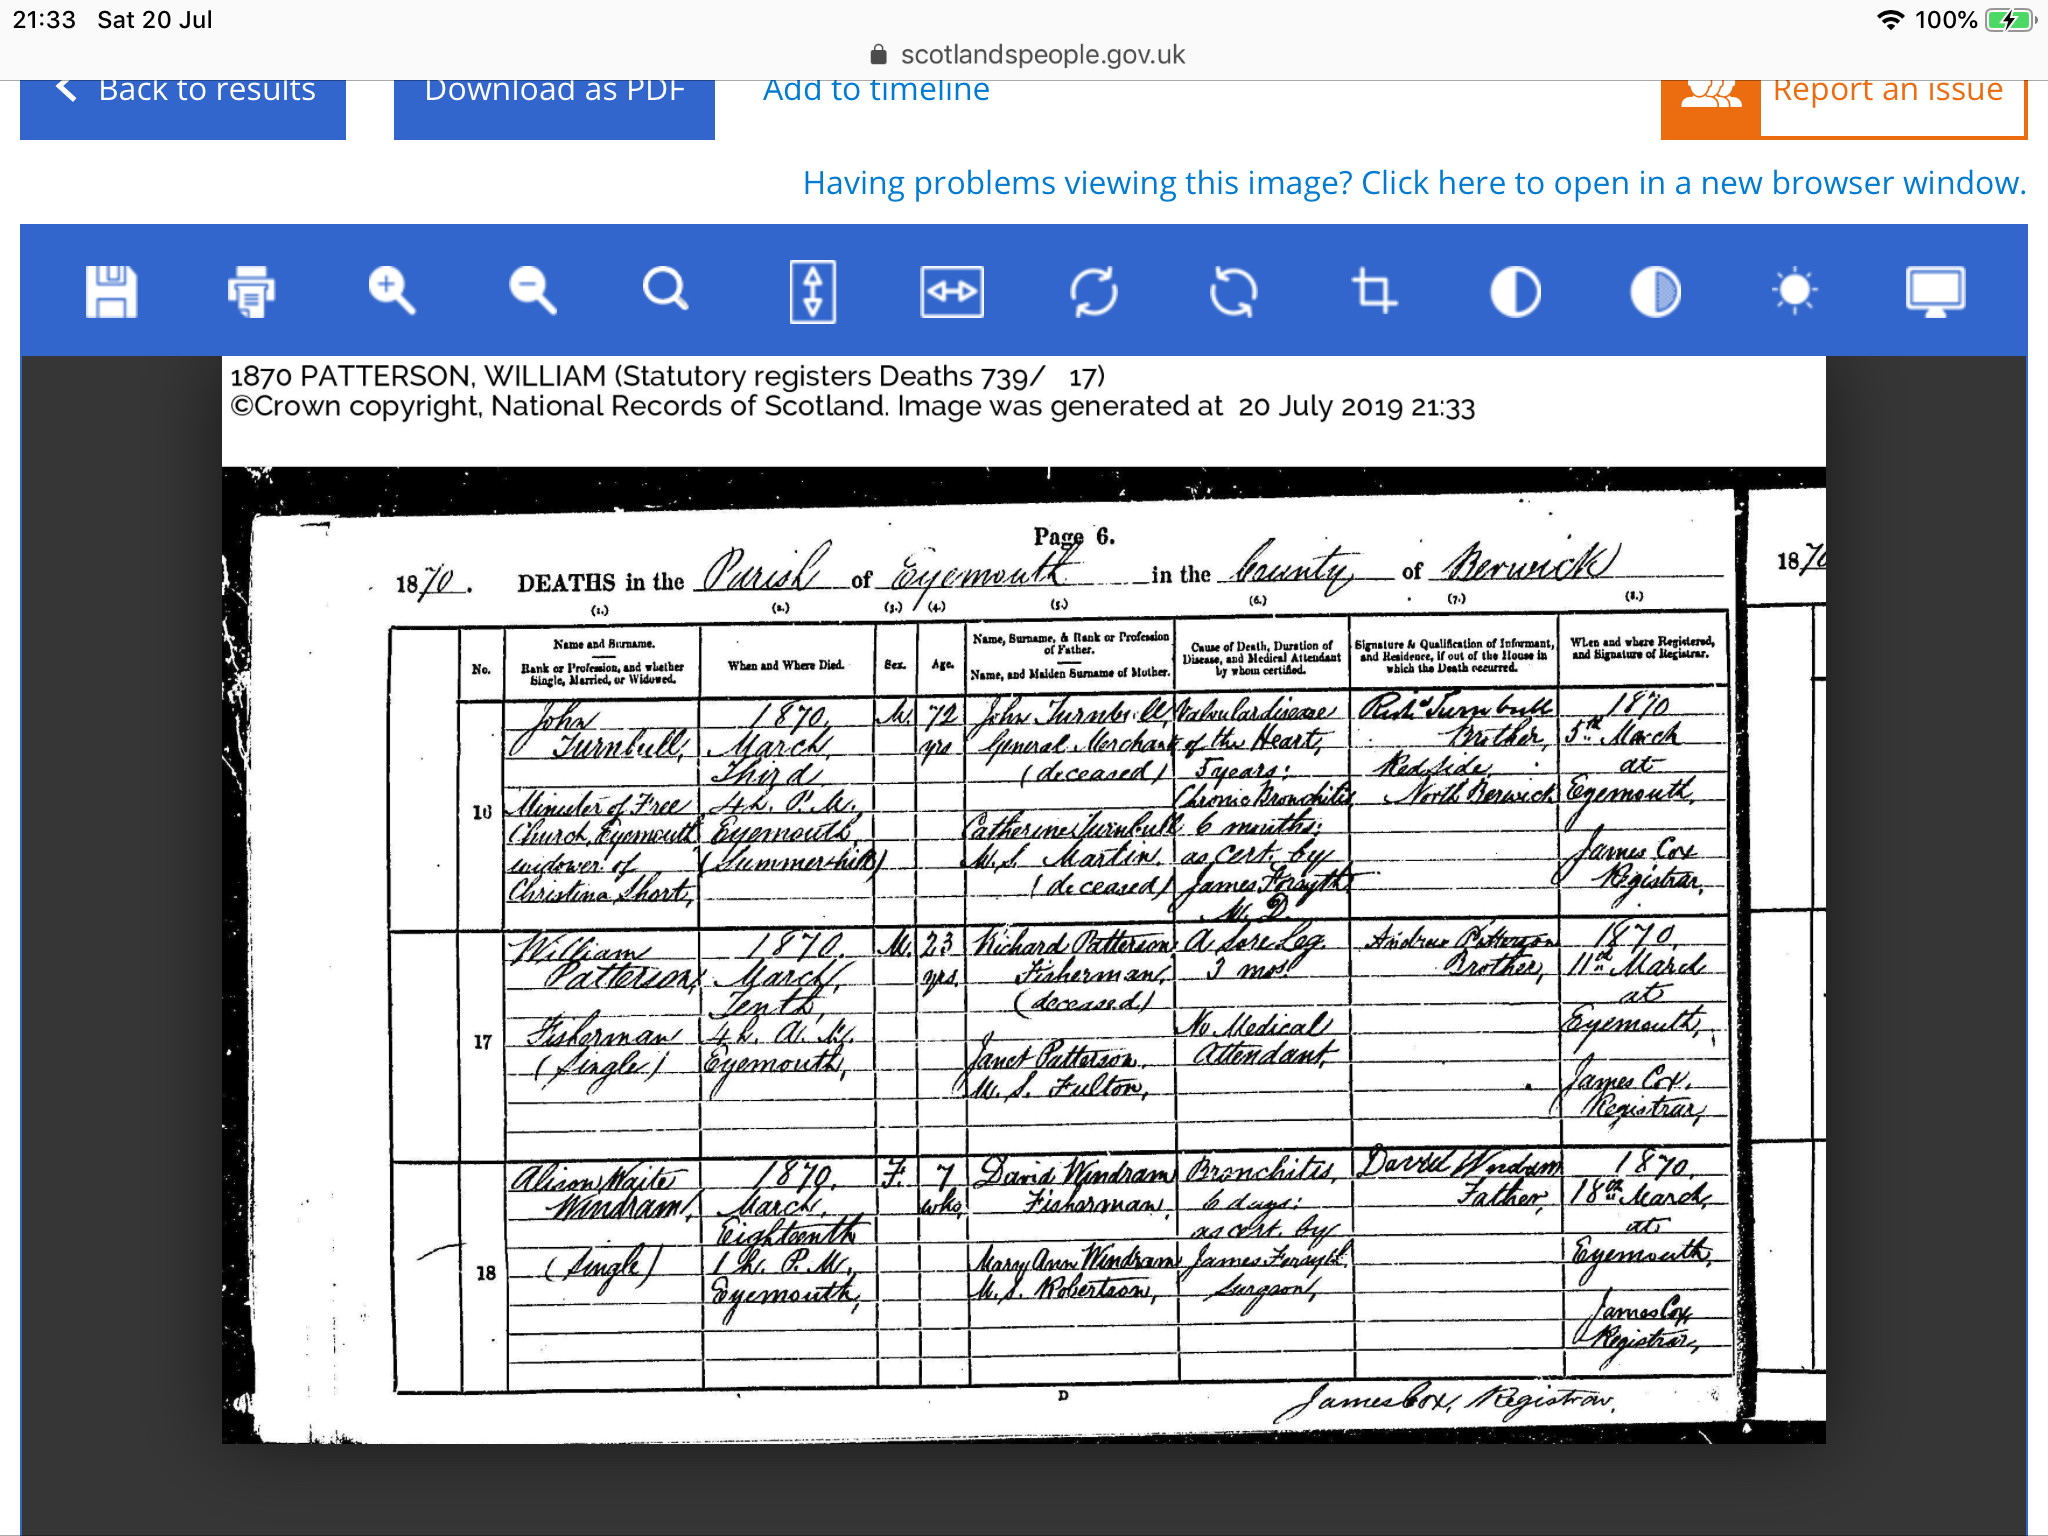 21:33 Sat 20 Jul
100%
scotlandspeople.gov.uk
Back to results
Download as PDF
Add to timeline
Report an issue
Having problems viewing this image? Click here to open in a new browser window.
1870 PATTERSON, WILLIAM (Statutory registers Deaths 739/ 17)
©Crown copyright, National Records of Scotland. Image was generated at 20 July 2019 21:33
Page 6.
1870. DEATHS in the Parish of Eyemouth in the County of Berwick
1870
(1.) (2.) (3.) (4.) (5.) (6.) (7.) (8.)
No.
Name and Surname.
Rank or Profession, and whether
Single, Married, or Widowed.
When and Where Died.
Sex.
Age.
Name, Surname, & Rank or Profession
of Father.
Name, and Maiden Surname of Mother.
Cause of Death, Duration of
Disease, and Medical Attendant
by whom certified.
Signature & Qualification of Informant,
and Residence, if out of the House in
which the Death occurred.
When and where Registered,
and Signature of Registrar.
16
John
Turnbull,
Minister of Free
Church, Eyemouth
widower of
Christina Short,
1870,
March,
Third,
4h. P.M.
Eyemouth,
(Summerhill)
M.
72
yrs
John Turnbull
General Merchant
(deceased)
Catherine Turnbull
M.S. Martin,
(deceased)
Valvular disease
of the Heart,
5 years;
Chronic Bronchitis
6 months;
as cert. by
James Forsyth
M.D.
Richd Turnbull
Brother,
Redside,
North Berwick
1870
5th March
at
Eyemouth,
James Cox
Registrar,
17
William
Patterson,
Fisherman
(Single)
1870.
March,
Tenth,
4h. A.M.
Eyemouth,
M.
23
yrs.
Richard Patterson
Fisherman,
(deceased)
Janet Patterson,
M.S. Fulton,
A Sore Leg.
3 mos.
No Medical
Attendant,
Andrew Patterson
Brother,
1870,
11th March
at
Eyemouth,
James Cox,
Registrar,
18
Alison Waite
Windram,
(Single)
1870,
March,
Eighteenth
1h. P.M.,
Eyemouth,
F.
7
wks,
David Windram
Fisherman,
Mary Ann Windram
M.S. Robertson,
Bronchitis,
6 days;
as cert. by
James Forsyth
Surgeon,
David Windram
Father,
1870,
18th March,
at
Eyemouth,
James Cox,
Registrar,
D
James Cox, Registrar.